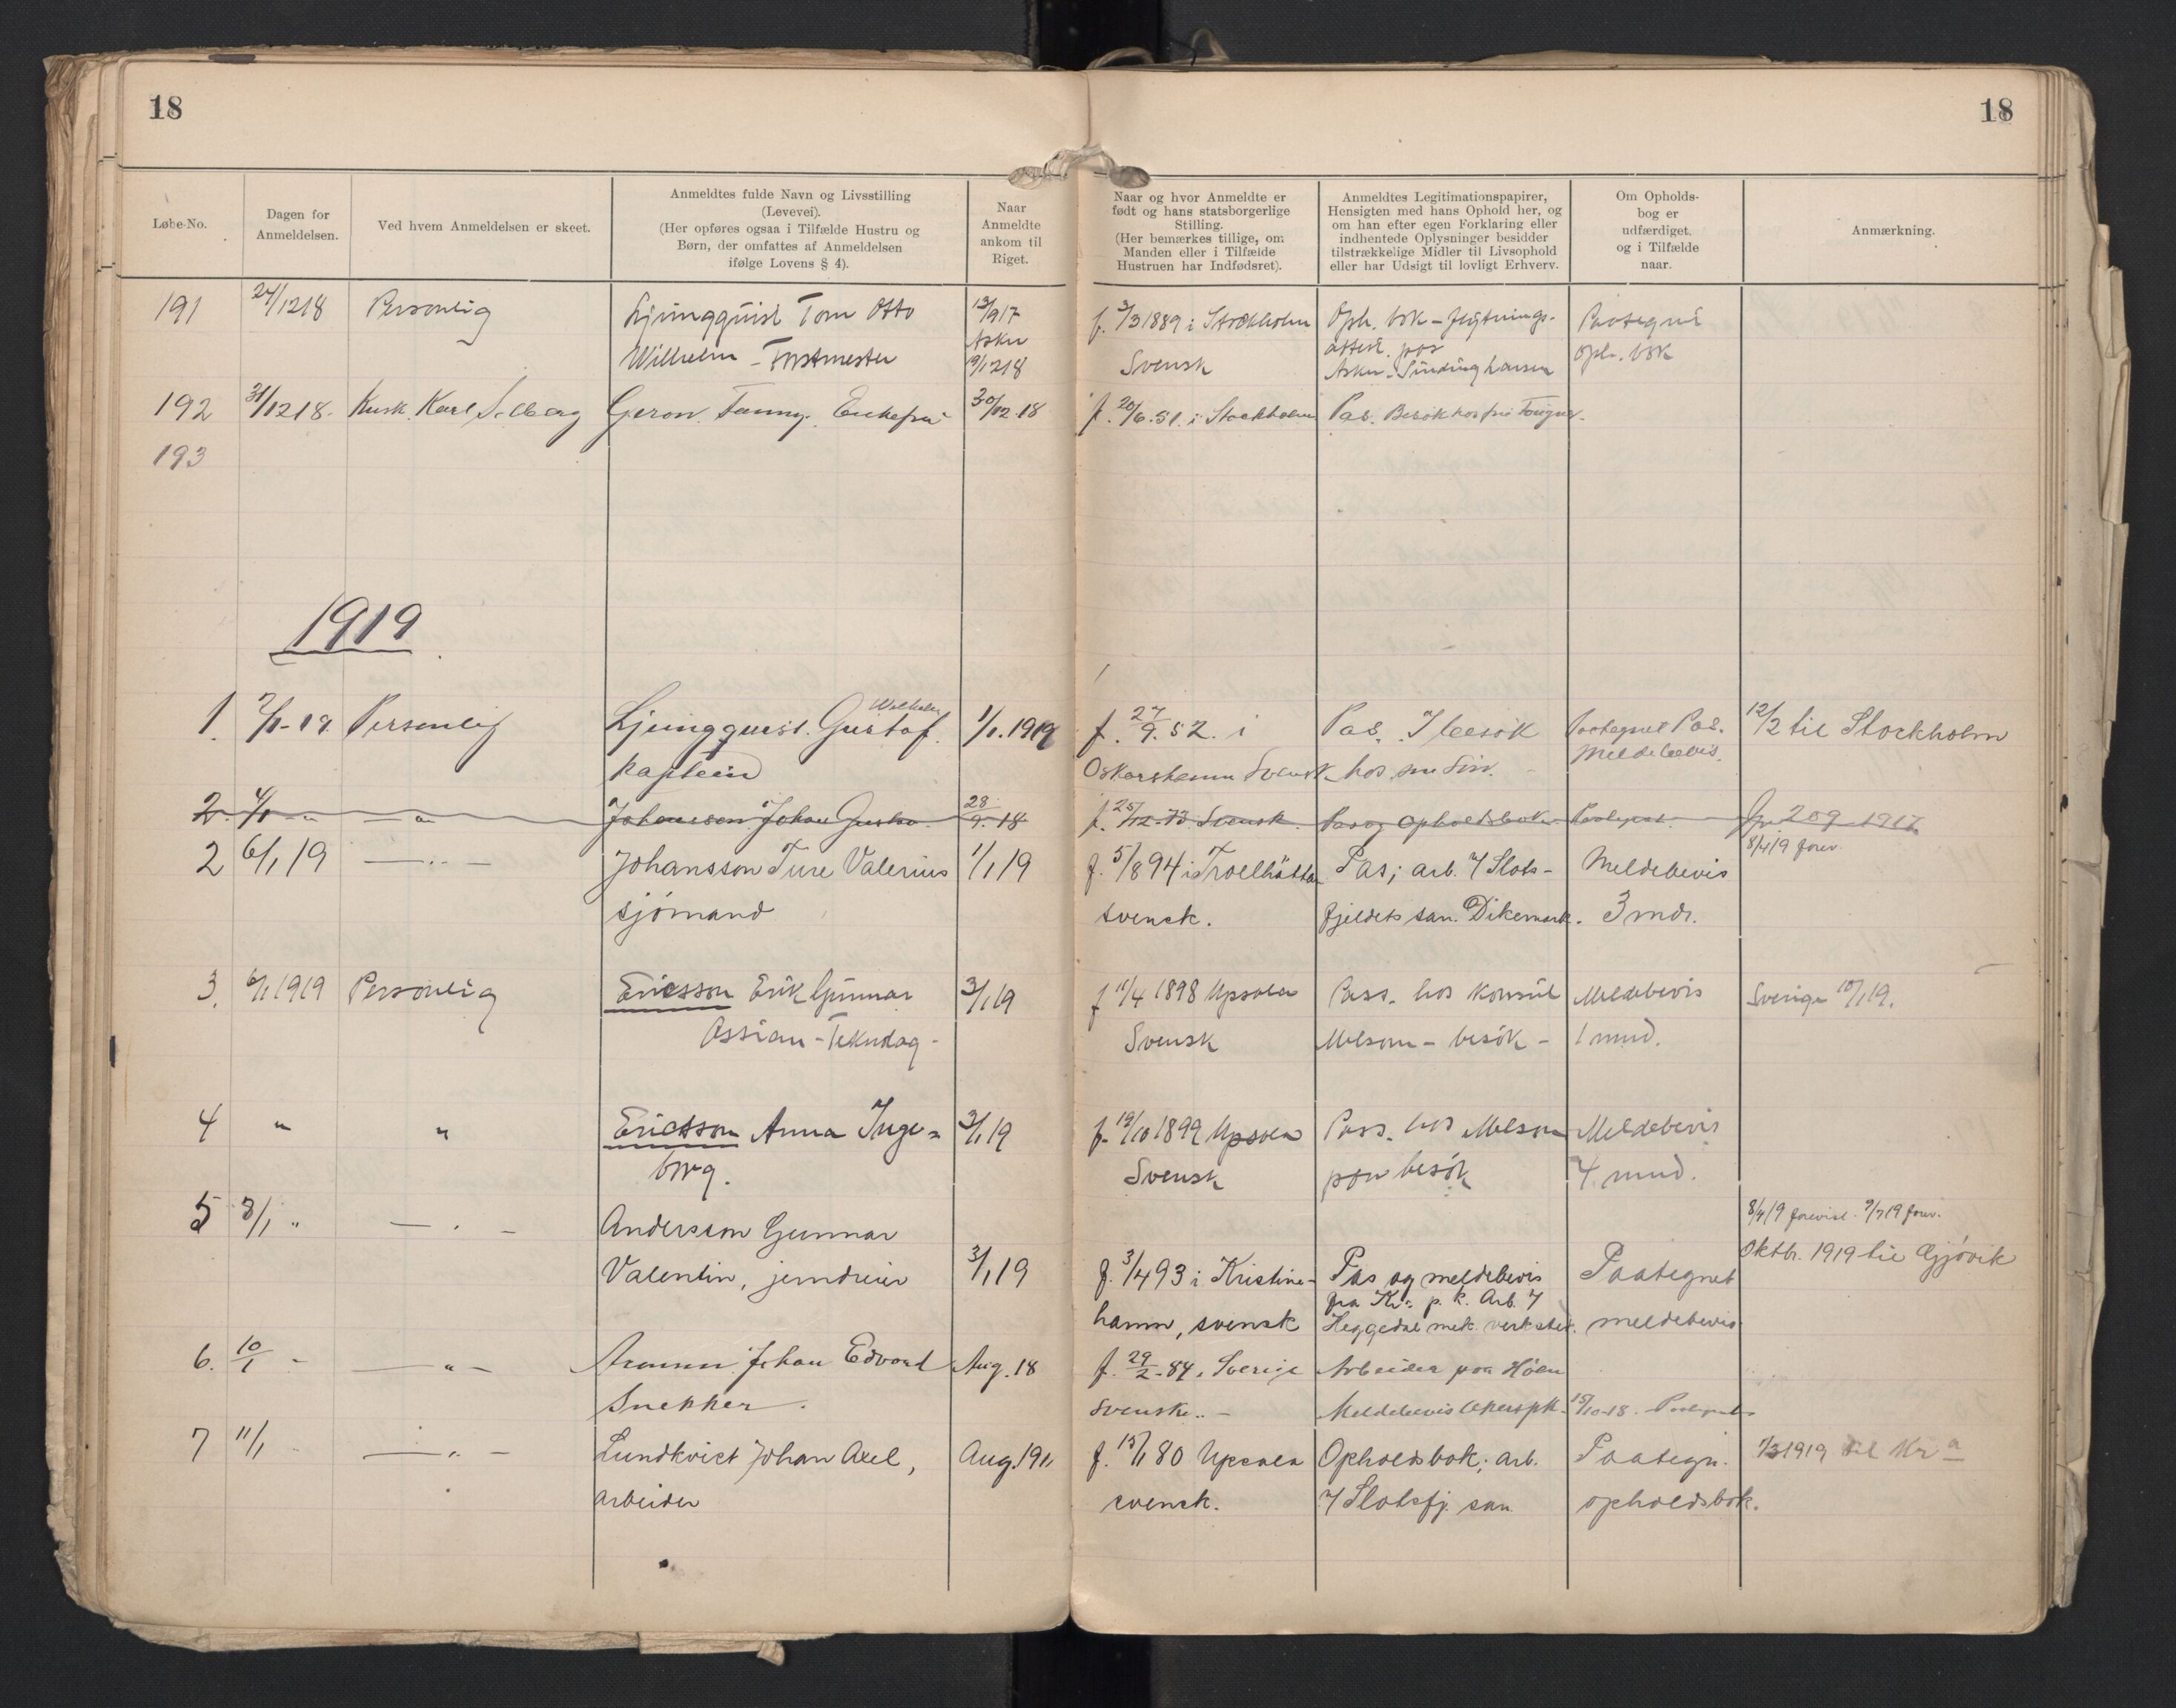 18
18
Løbe-No.
Dagen for
Anmeldelsen.
Ved hvem Anmeldelsen er skeet.
Anmeldtes fulde Navn og Livsstilling
(Levevei).
(Her opføres ogsaa i Tilfælde Hustru og
Børn, der omfattes af Anmeldelsen
ifølge Lovens § 4).
Naar
Anmeldte
ankom til
Riget.
Naar og hvor Anmeldte er
født og hans statsborgerlige
Stilling.
(Her bemærkes tillige, om
Manden eller i Tilfælde
Hustruen har Indfødsret).
Anmeldtes Legitimationspapirer,
Hensigten med hans Ophold her, og
om han efter egen Forklaring eller
indhentede Oplysninger besidder
tilstrækkelige Midler til Livsophold
eller har Udsigt til lovligt Erhverv.
Om Opholds-
bog er
udfærdiget.
og i Tilfælde
naar.
Anmærkning.
191 24/12 18 Personlig Ljungquist Tom Otto 13/9 17 f. 3/3 1889 i Stockholm Oph. bok - flytnings- Paategnet
Wilhelm - Forstmester Asker 19/12 18 Svensk attest. pas Asker - Sinding Larsen oph. bok
192 31/12 18. Kusk. Karl Solberg Geron. Fanny. Enkefru 30/12 18 f. 20/6. 51. i Stockholm Pas. Besøk hos fru
193
1919
1. 2/1-19. Personlig Ljungquist. Gustaf Wilhelm 1/1. 1919 f. 27/9. 52. i Pas. I besøk Paategnet Pas. 12/2 til Stockholm
Kaptein Oskarshamn Svensk hos sin Søn. Meldebevis.
2. 4/1 - " — " — Johansson. Johan Gustav 28/9. 18 f. 25/12-73. Svensk. Pas og Opholdsbok Paategnet. 209 1917
2 6/1 19 — " — Johansson Ture Valerius 1/1 19 f. 5/8 94 i Troelhätta Pas; arb. v/ Slots- Meldebevis 8/4 19 forev.
sjömand svensk. fjeldets san. Dikemark. 3 mdr.
3. 6/1 1919 Personlig Ericsson Erik Gunnar 3/1 19 f 11/4 1898 Upsala Pass. hos Konsul Meldebevis Sverige 10/1 19.
Ossian - Svensk Melsom - besøk - 1 mnd.
4 " " Ericsson Anna Inge= 3/1 19 f. 19/10 1899 Upsala Pass. hos Melsom Meldebevis
borg. Svensk paa besøk 4 mnd.
5 8/1 " — " — Andersson Gunnar 8/4 19 forevist. 9/7 19 forev.
Valentin, jerndreier 3/1 19 f. 3/4 93 i Kristine- Pas og meldebevis Paategnet Oktbr. 1919 til Gjövik
hamn, svensk fra Kr.a p. k. Arb. v/ Heggedal mek. verksted. meldebevis
6. 10/1 - — " — Johan Edvard Aug. 18 f. 29/2-84. Sverige Arbeider paa Höen
Snekker. Svenske. - Meldebevis 15/10-18. Paategnet
7 11/1 " — " — Lundkvist Johan Axel, Aug. 1911 f. 15/1 80 Upsala Opholdsbok; arb. Paategn. 1/3 1919 til Kr.a
arbeider svensk. v/ Slotsfj. san. opholdsbok.